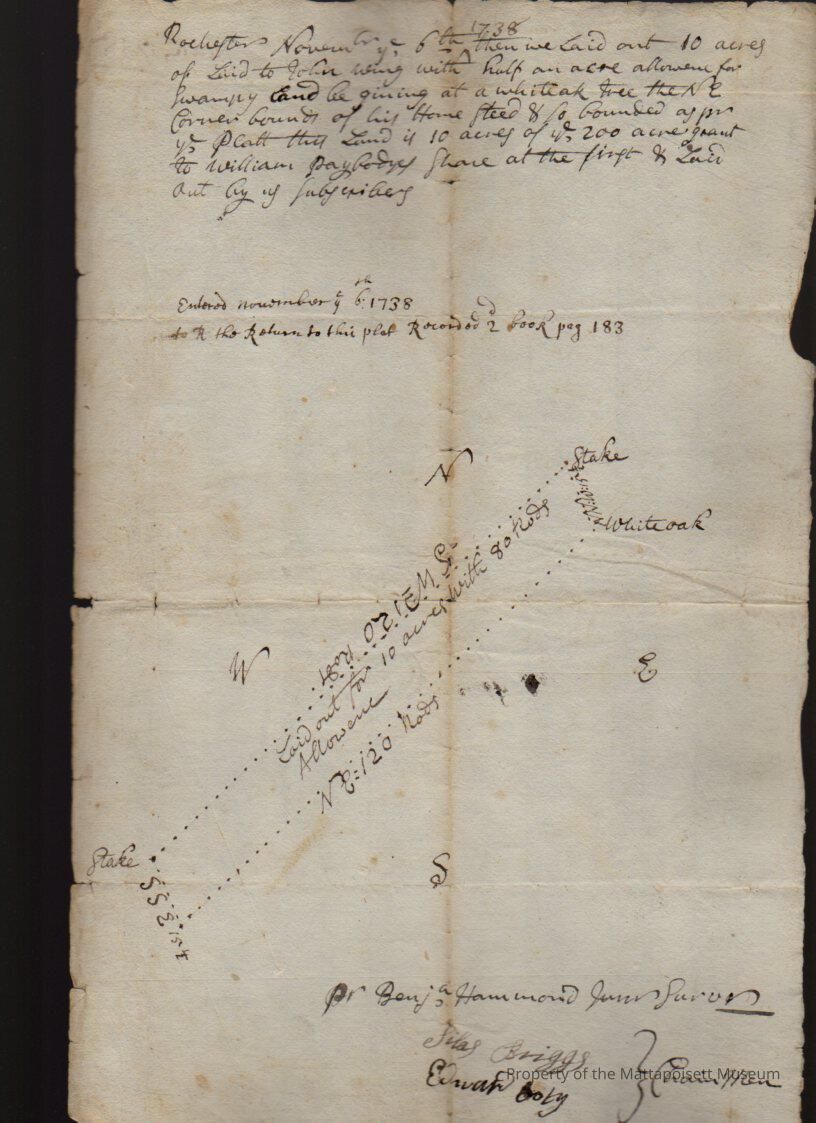 Rochester November ye 6th 1738 then we Laid out 10 acres
of Land to John wing with half an acre allowenc for
swampy Land be gining at a whiteak tree the NE
Corner bounds of his Home steed & so bounded as pr
ye Platt this Land is 10 acres of ye 200 acre grant
to William Paybodys Share at the first & Laid
out by us subscribers
Entered november ye 6th 1738
the Return to this plat Recorded 2d book pag 183
N
Stake
Whiteoak
S W 120 Rods
Laid out for 10 acres with 80 Rods
Allowenc
W
E
N E 120 Rods
Stake
S S E 15
S
pr Benja Hammond Junr Survor
Silas Briggs
Edward Doty
Chainmen
Property of the Mattapoisett Museum